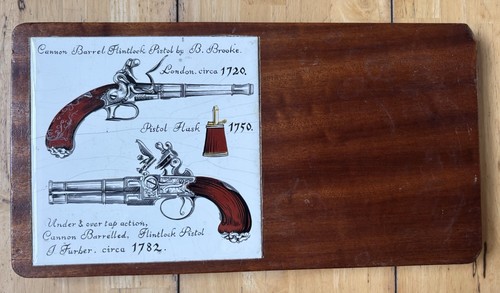 Cannon Barrel Flintlock Pistol by B. Brooke.
London. circa 1720.
Pistol Flask 1750.
Under & over tap action,
Cannon Barrelled. Flintlock Pistol
J. Furber. circa 1782.